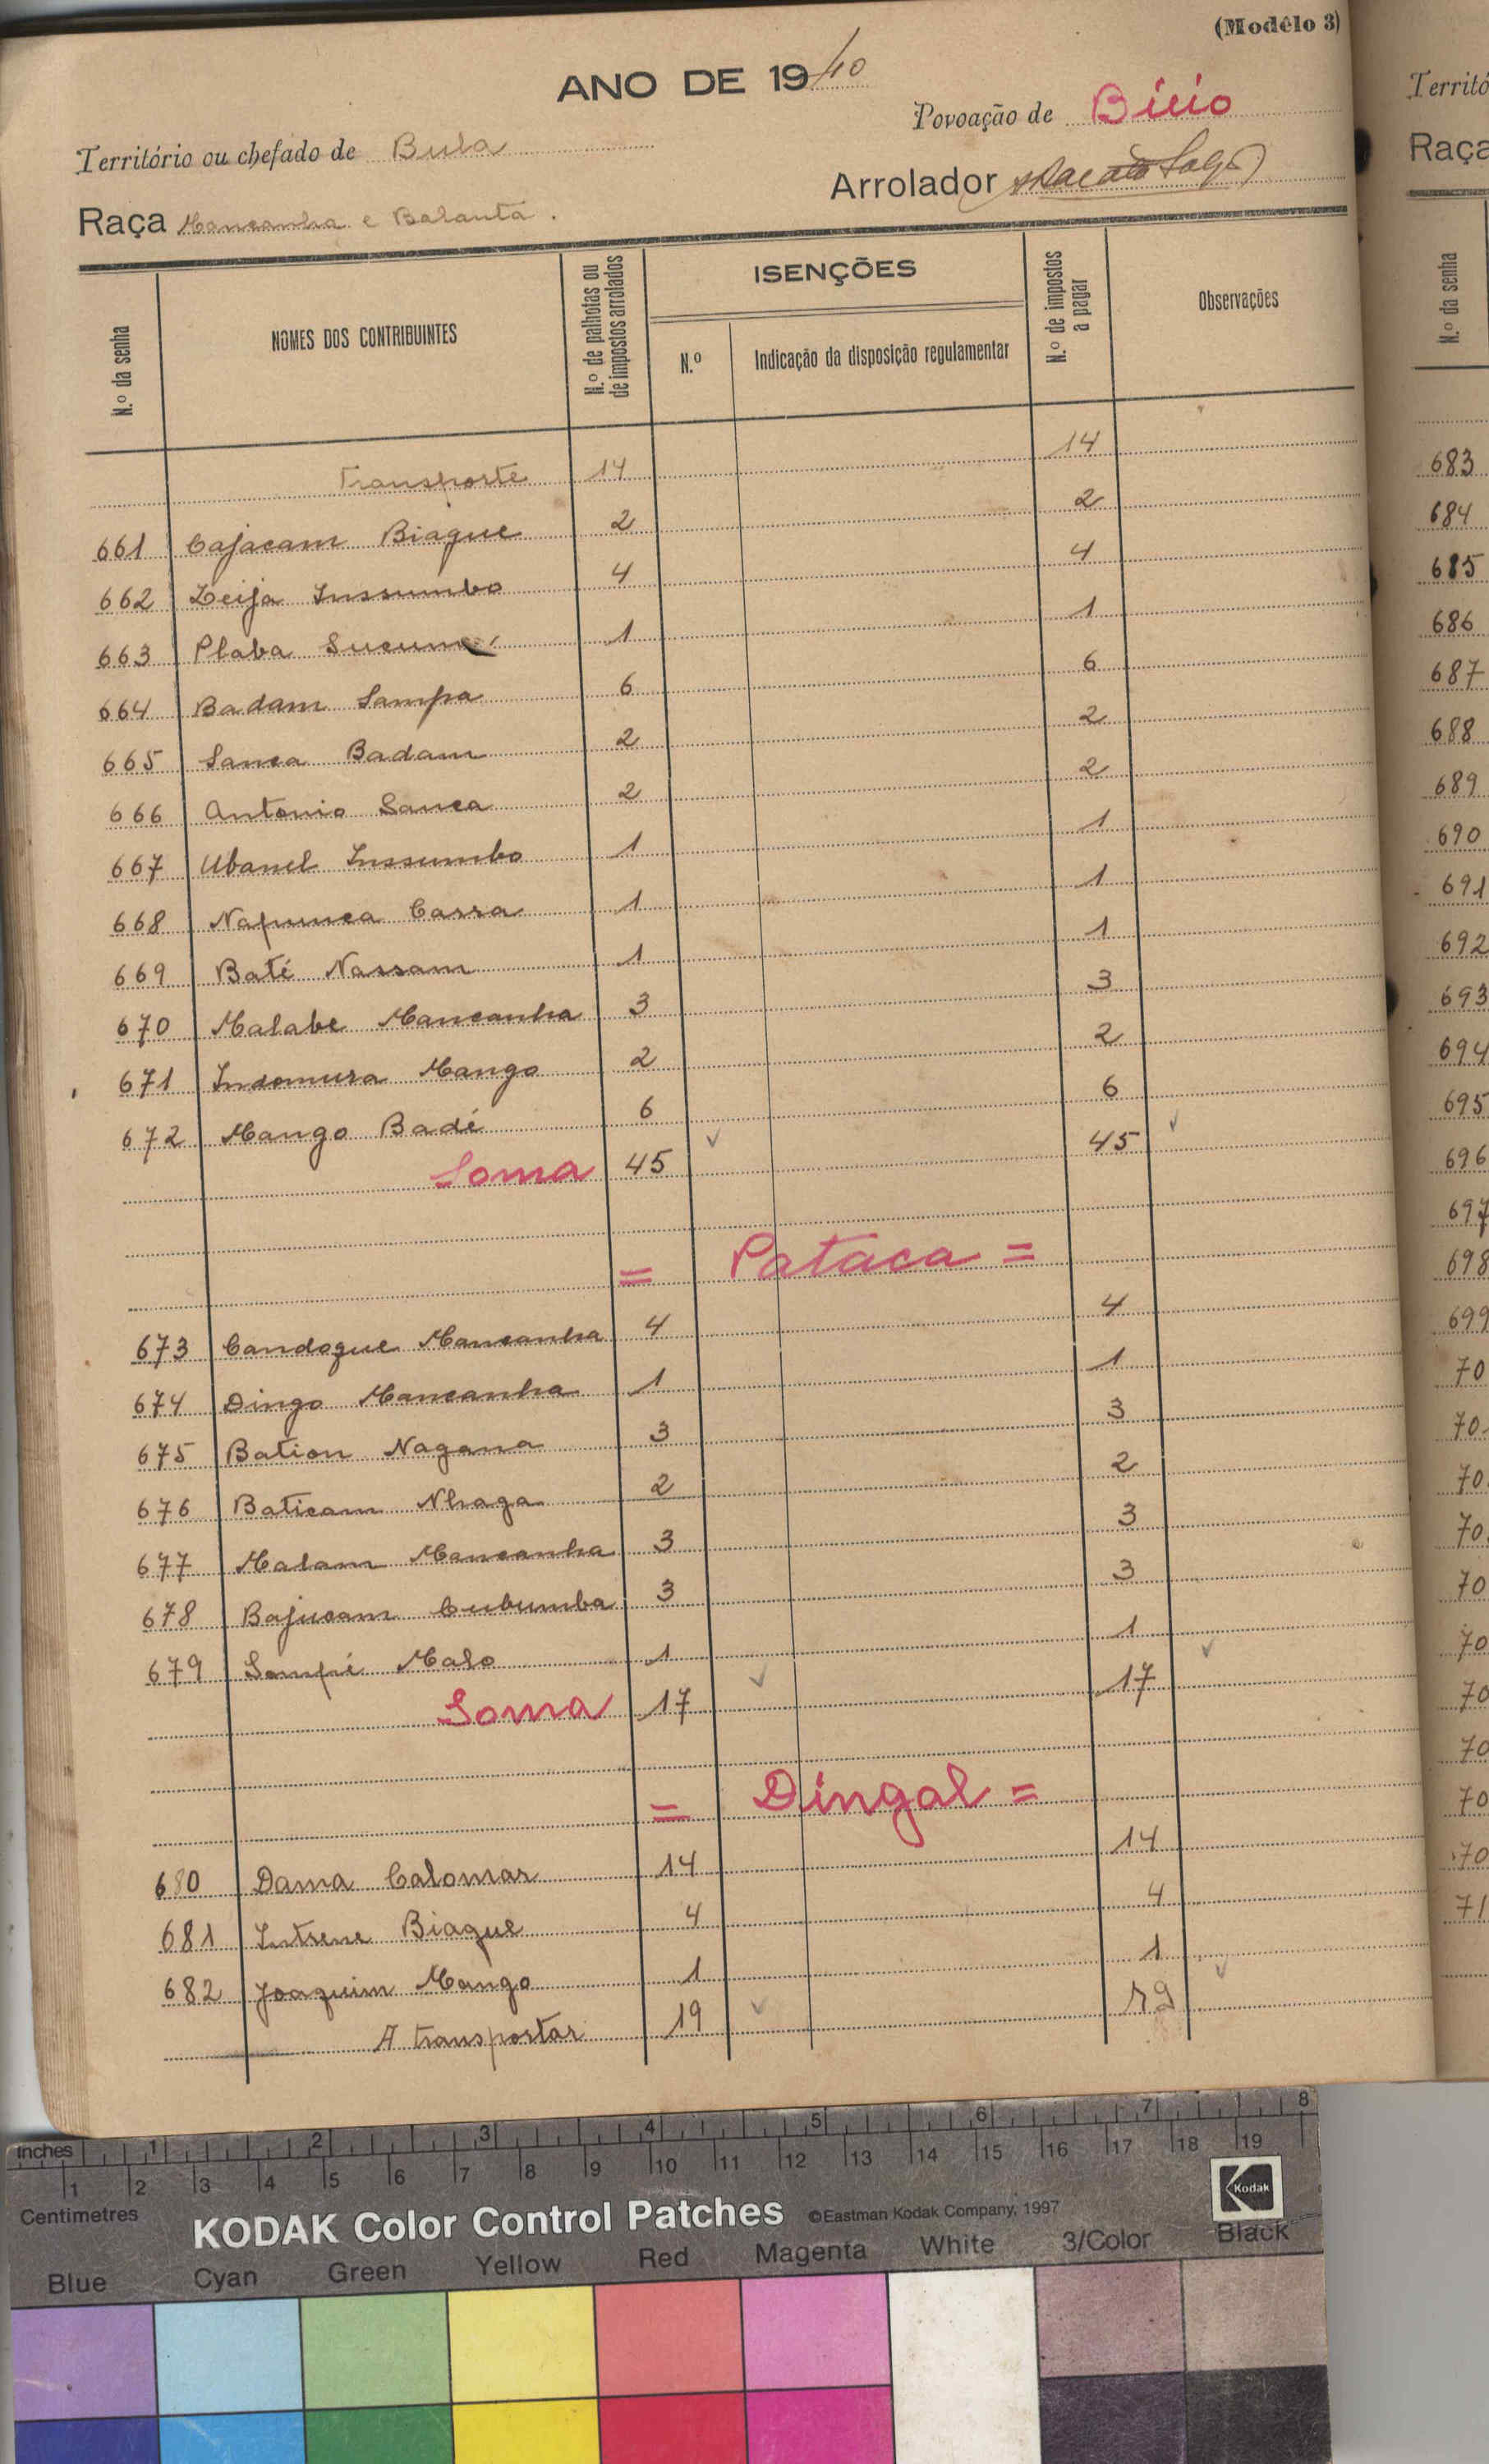 (Modêlo 3)
ANO DE 1940
Povoação de Biiio
Território ou chefado de Bula
Arrolador
Raça Mancanha e Balanta.
N.º da senha
NOMES DOS CONTRIBUINTES
N.º de palhotas ou de impostos arrolados
ISENÇÕES
N.º
Indicação da disposição regulamentar
N.º de impostos a pagar
Observações
Transporte 14 14
661 Cajacam Biague 2 2
662 Leija Inssumbo 4 4
663 Plaba Sucuma 1 1
664 Badam Sampa 6 6
665 Sanca Badam 2 2
666 Antonio Sanca 2 2
667 Ubanel Inssumbo 1 1
668 Napunca Cassa 1 1
669 Baté Nassam 1 1
670 Malabe Mancanha 3 3
671 Indomusa Mango 2 2
672 Mango Badé 6 6
Soma 45 45
= Pataca =
673 Candoque Mancanha 4 4
674 Dingo Mancanha 1 1
675 Bation Nagana 3 3
676 Baticam Nhaga 2 2
677 Malam Mancanha 3 3
678 Bajucam Cubumba 3 3
679 Sampé Malo 1 1
Soma 17 17
= Dingal =
680 Dama Calomar 14 14
681 Intrene Biague 4 4
682 Joaquim Mango 1 1
A transportar 19 19
Territó
Raça
N.º da senha
683
684
685
686
687
688
689
690
691
692
693
694
695
696
697
698
699
70
70
70
70
70
70
70
70
70
70
71
inches 1 2 3 4 5 6 7 8
1 2 3 4 5 6 7 8 9 10 11 12 13 14 15 16 17 18 19
Centimetres
KODAK Color Control Patches ©Eastman Kodak Company, 1997
Kodak
Blue Cyan Green Yellow Red Magenta White 3/Color Black